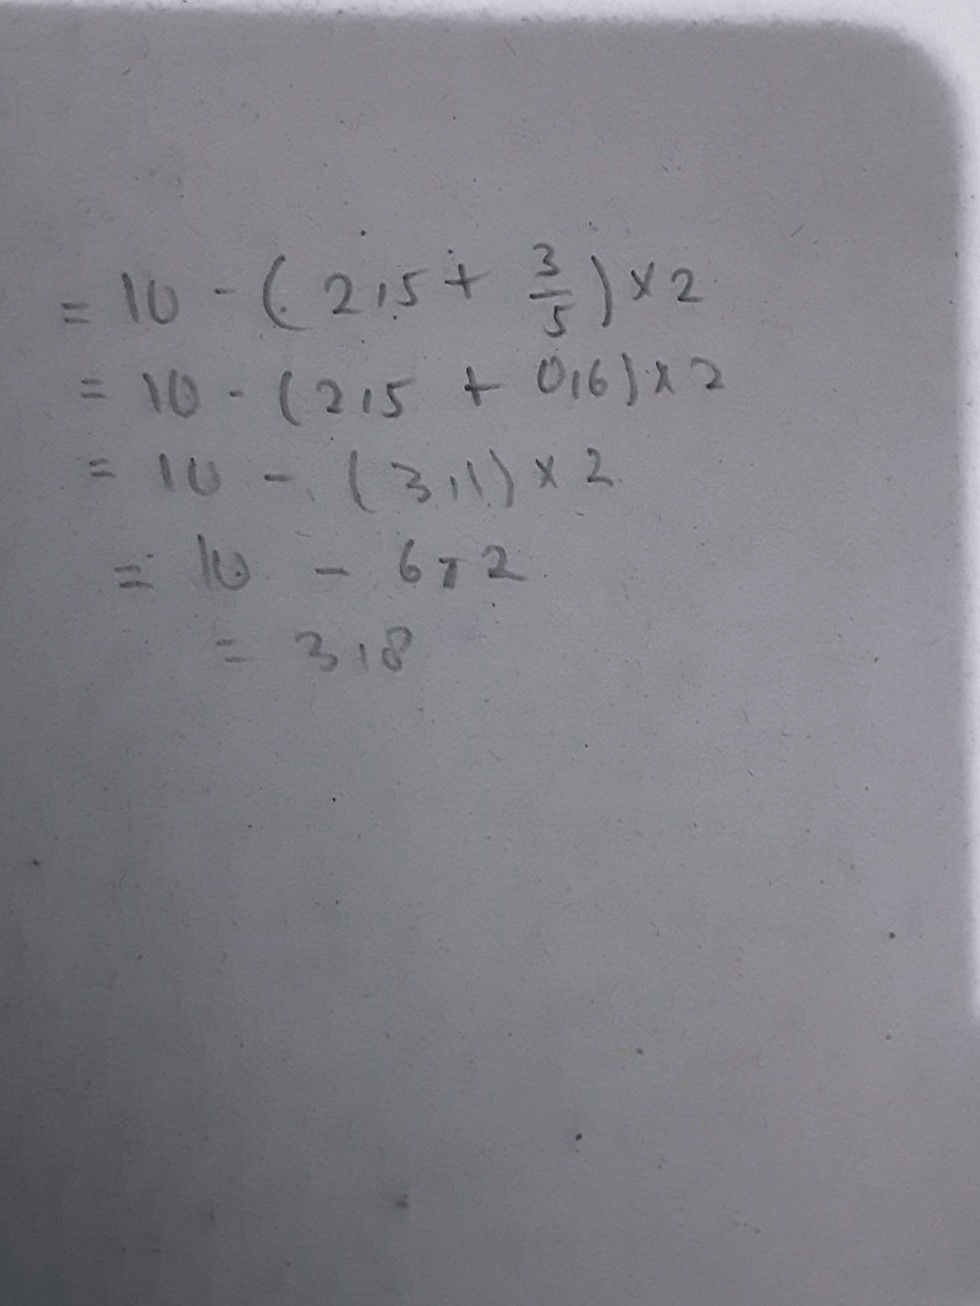 = 10 - ( 2,5 + 3/5 ) × 2
= 10 - ( 2,5 + 0,6 ) × 2
= 10 - ( 3,1 ) × 2
= 10 - 6,2
= 3,8